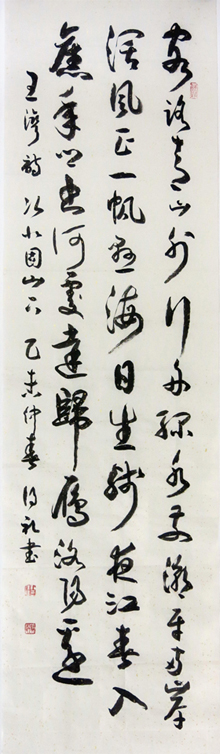 客路青山外行舟綠水前潮平兩岸
闊風正一帆懸海日生殘夜江春入
舊年鄉書何處達歸雁洛陽邊
王灣詩次北固山下 乙未仲春 礼書